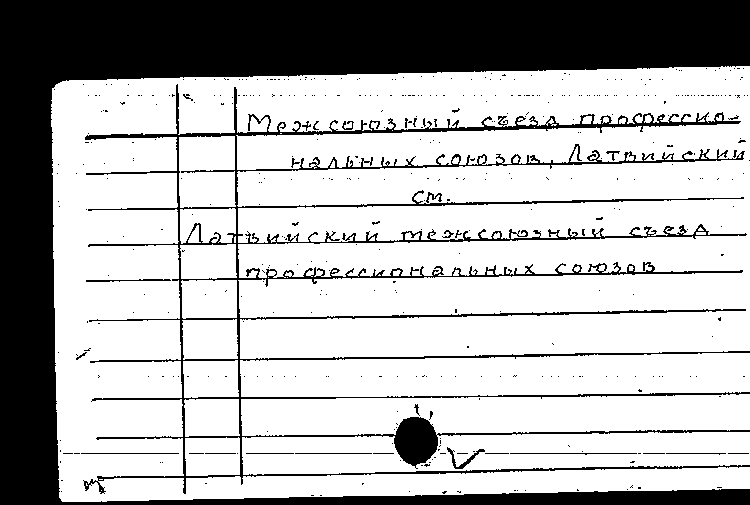 Межсоюзный съезд профессио-
нальных союзов, Латвийский
см.
Латвийский межсоюзный съезд
профессиональных союзов